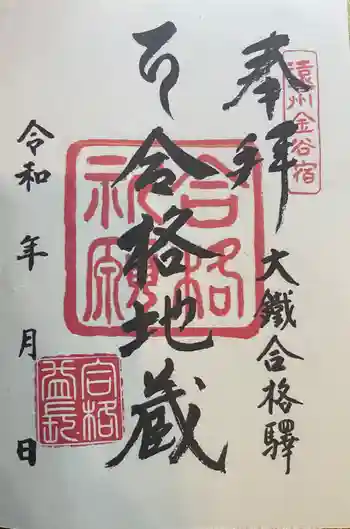 遠州金谷宿
奉拝
大鐵合格驛
合格地蔵
合格祈願
令和 年 月 日